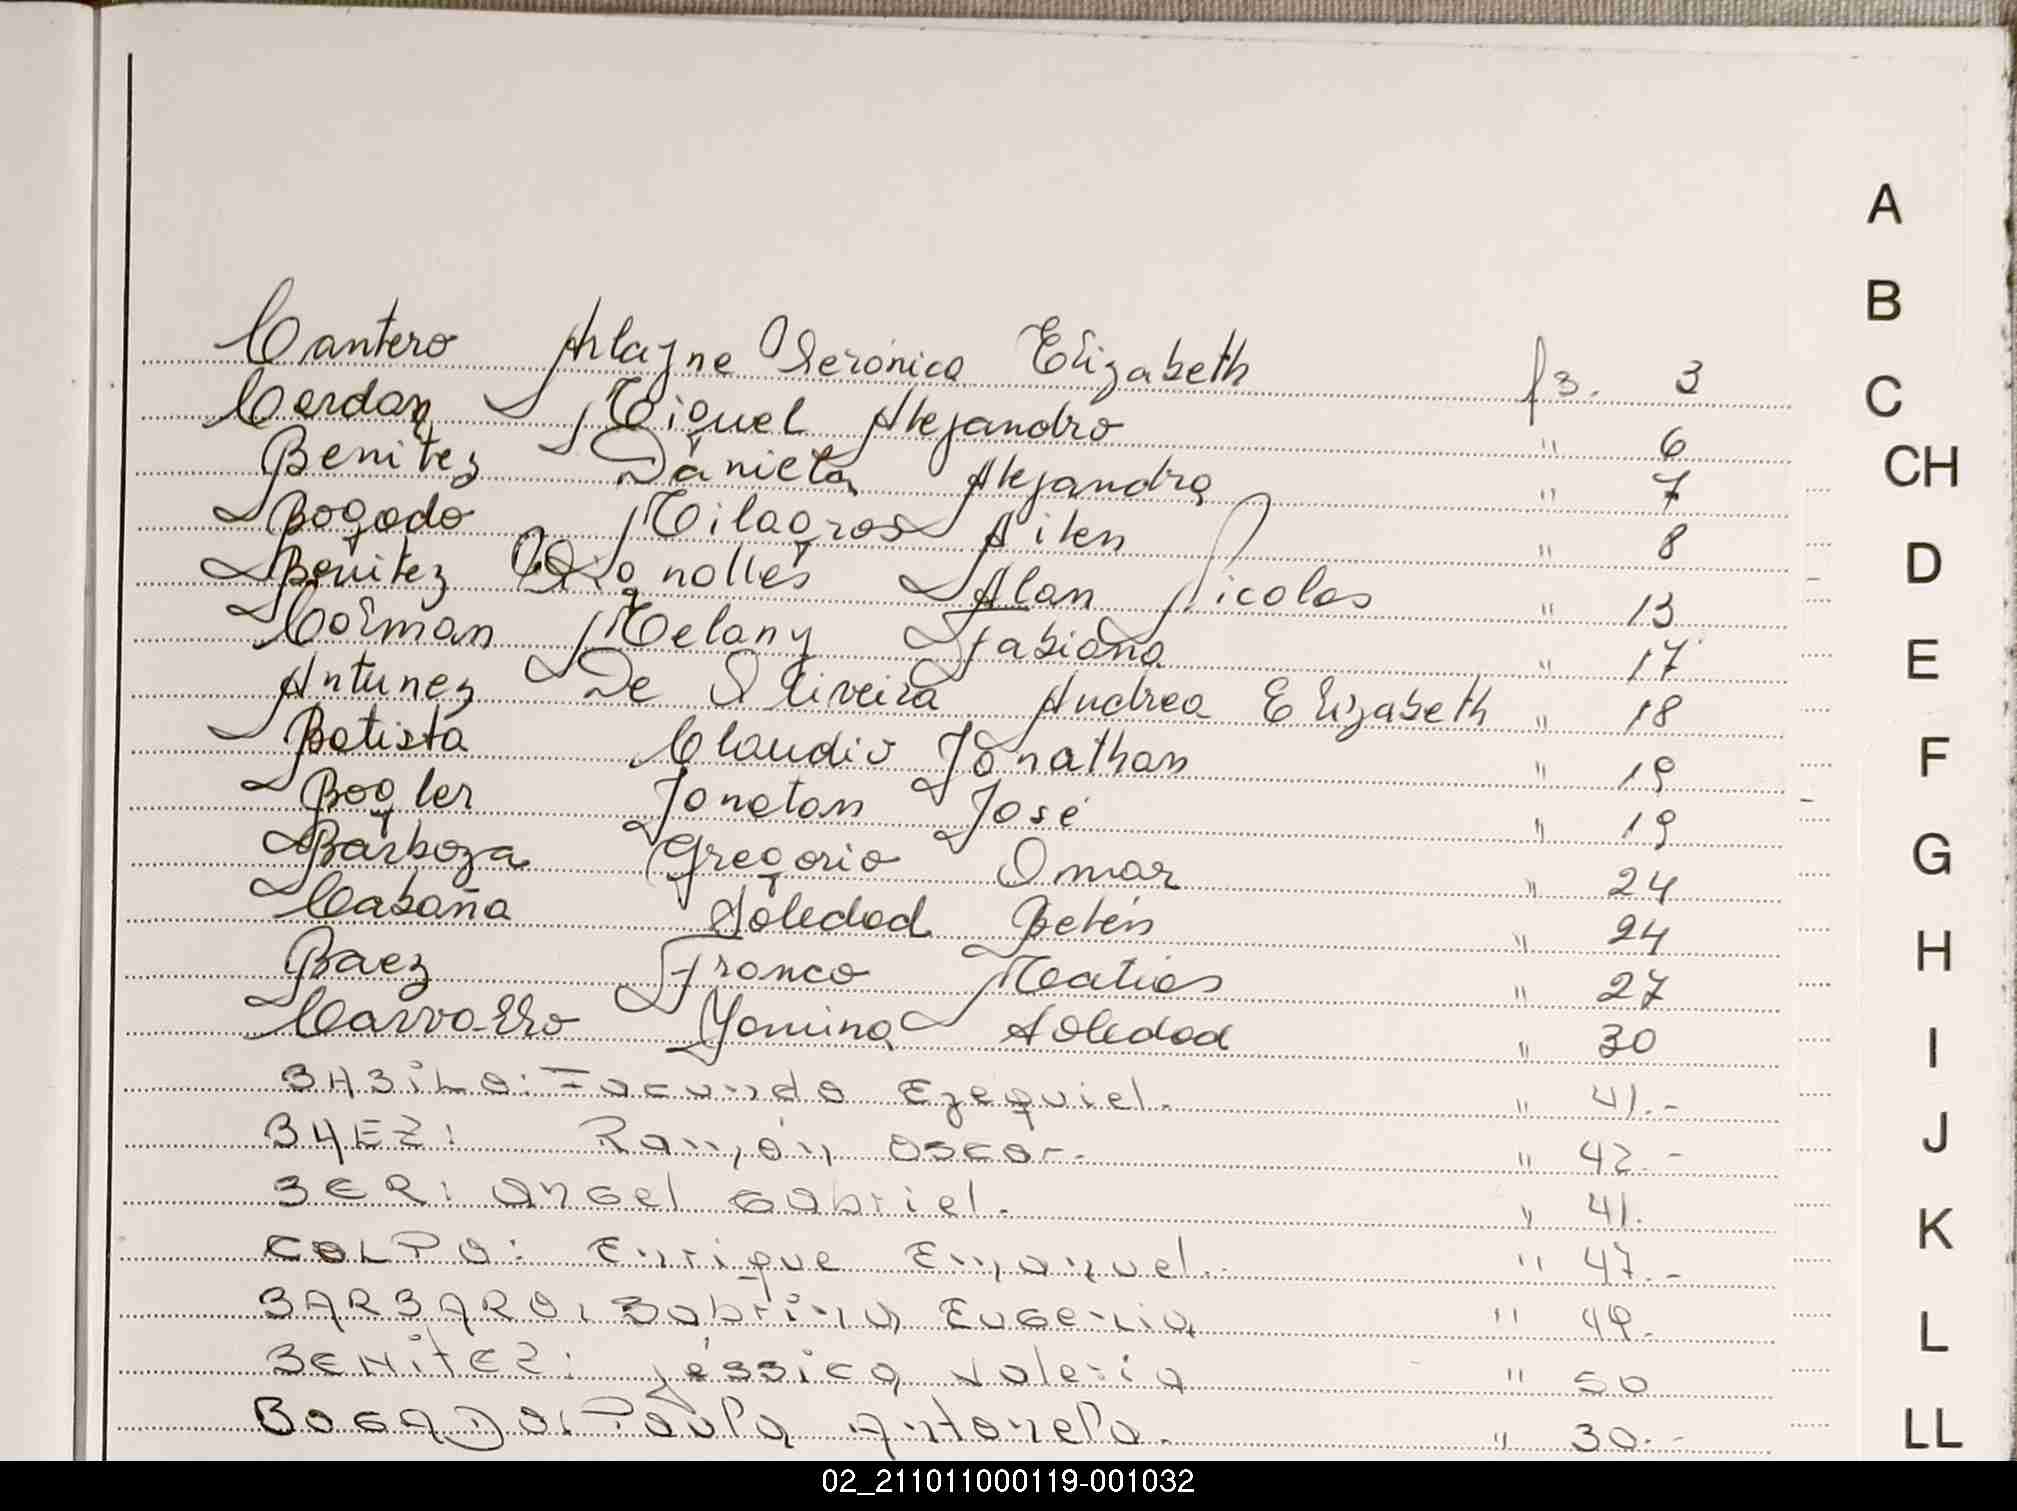 Cantero Arlayne Verónica Elizabeth fs. 3
Cerdan Miguel Alejandro " 6
Benitez Daniela Alejandra " 7
Bogado Milagros Ailen " 8
Benitez Vignolles Alan Nicolas " 13
Colman Melany Fabiana " 17
Antunez De Oliveira Andrea Elizabeth " 18
Batista Claudio Jonathan " 19
Bogler Jonatan José " 19
Barboza Gregorio Omar " 24
Cabaña Soledad Belén " 24
Baez Franco Matias " 27
Carvallo Yamina Soledad " 30
BABiLO: Facundo Ezequiel. " 41.-
BAEZ: Ramón Oscar. " 42.-
BER: Angel Gabriel. " 41.
COLPO: Enrique Emanuel. " 47.-
BARBARO: Sabrina Eugenia " 49.
BENiTEZ: Jéssica Valeria " 50
BOGADO: Paula Antonela. " 30.-
A
B
C
CH
D
E
F
G
H
I
J
K
L
LL
02_211011000119-001032